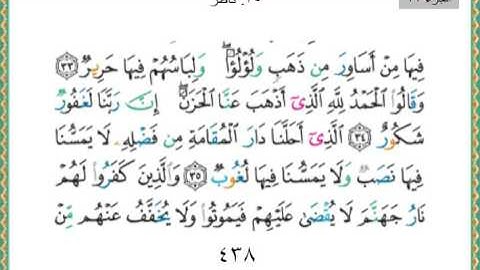 ٣٥. فاطر
فِيهَا مِنْ أَسَاوِرَ مِن ذَهَبٍ وَلُؤْلُؤًا ۖ وَلِبَاسُهُمْ فِيهَا حَرِيرٌ ٣٣
وَقَالُوا الْحَمْدُ لِلَّهِ الَّذِىٓ أَذْهَبَ عَنَّا الْحَزَنَ ۖ إِنَّ رَبَّنَا لَغَفُورٌ
شَكُورٌ ٣٤ الَّذِىٓ أَحَلَّنَا دَارَ الْمُقَامَةِ مِن فَضْلِهِ لَا يَمَسُّنَا
فِيهَا نَصَبٌ وَلَا يَمَسُّنَا فِيهَا لُغُوبٌ ٣٥ وَالَّذِينَ كَفَرُوا لَهُمْ
نَارُ جَهَنَّمَ لَا يُقْضَىٰ عَلَيْهِمْ فَيَمُوتُوا وَلَا يُخَفَّفُ عَنْهُم مِّنْ
٤٣٨